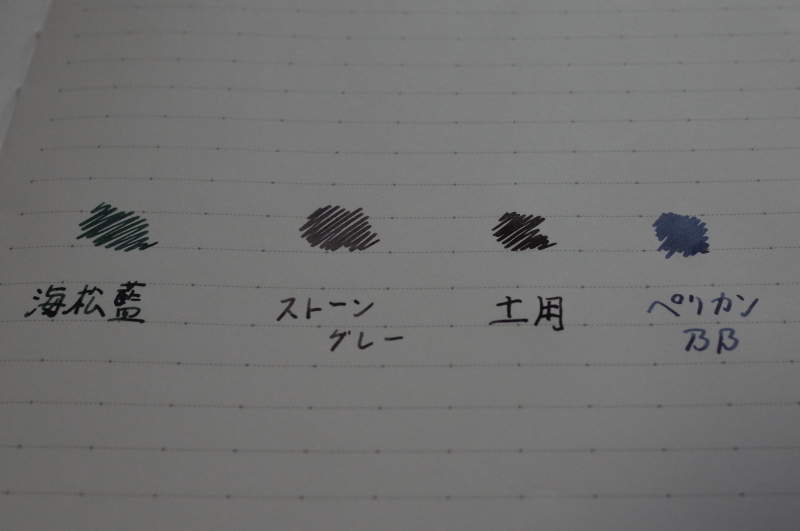 海松藍
ストーン
グレー
土用
ペリカン
BB